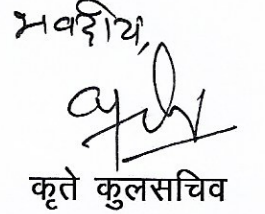 भवदीय,
कृते कुलसचिव